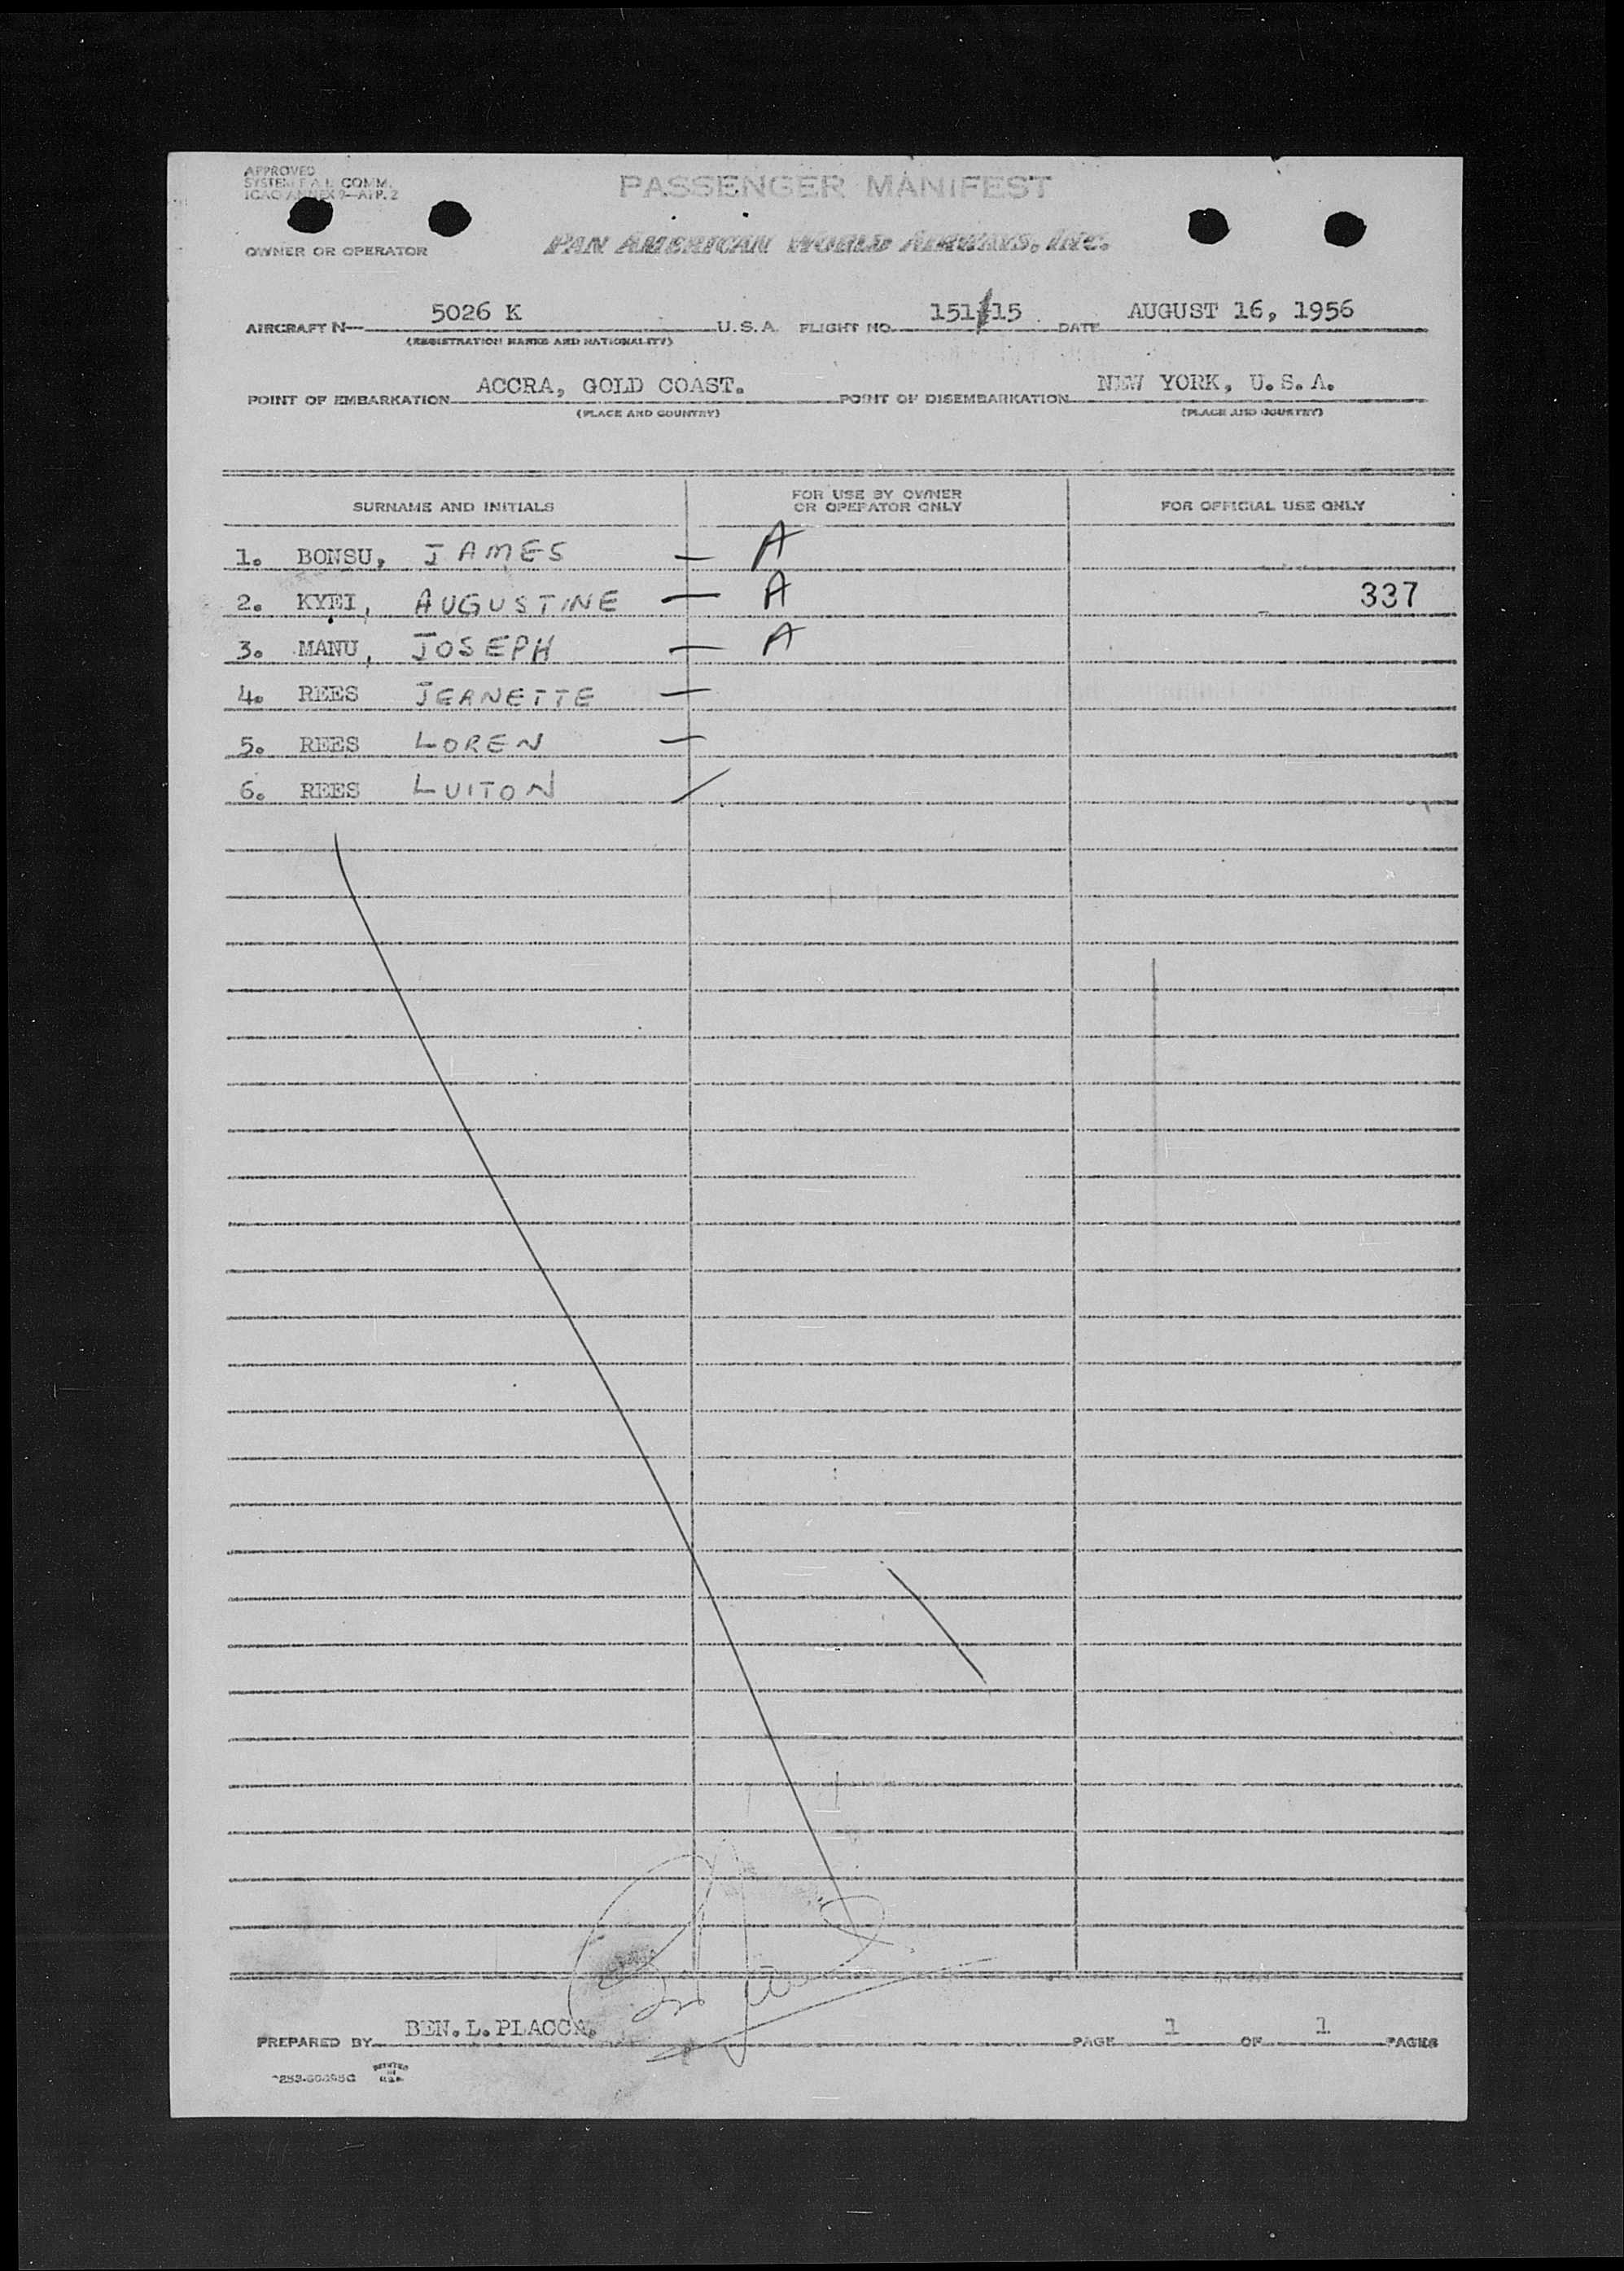 APPROVED
SYSTEM F.A.L. COMM.
ICAO ANNEX 9—APP. 2
PASSENGER MANIFEST
OWNER OR OPERATOR PAN AMERICAN WORLD AIRWAYS, INC.
AIRCRAFT N— 5026 K U.S.A. FLIGHT NO. 151/15 DATE AUGUST 16, 1956
(REGISTRATION MARKS AND NATIONALITY)
POINT OF EMBARKATION ACCRA, GOLD COAST. POINT OF DISEMBARKATION NEW YORK, U.S.A.
(PLACE AND COUNTRY) (PLACE AND COUNTRY)
SURNAME AND INITIALS FOR USE BY OWNER OR OPERATOR ONLY FOR OFFICIAL USE ONLY
1. BONSU, JAMES — A
2. KYEI, AUGUSTINE — A 337
3. MANU, JOSEPH — A
4. REES JEANETTE —
5. REES LOREN —
6. REES LUITON
PREPARED BY BEN. L. PLACCA. PAGE 1 OF 1 PAGES
PRINTED
IN
U.S.A.